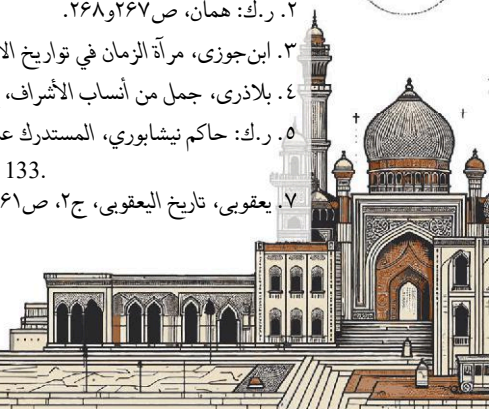 ۲. ر.ک: همان، ص۲۶۷و۲۶۸.
۳. ابن‌جوزی، مرآة الزمان في تواريخ
٤. بلاذری، جمل من أنساب الأشراف،
٥. ر.ک: حاکم نیشابوري، المستدرك
133.
۷. یعقوبی، تاریخ الیعقوبی، ج۲، ص